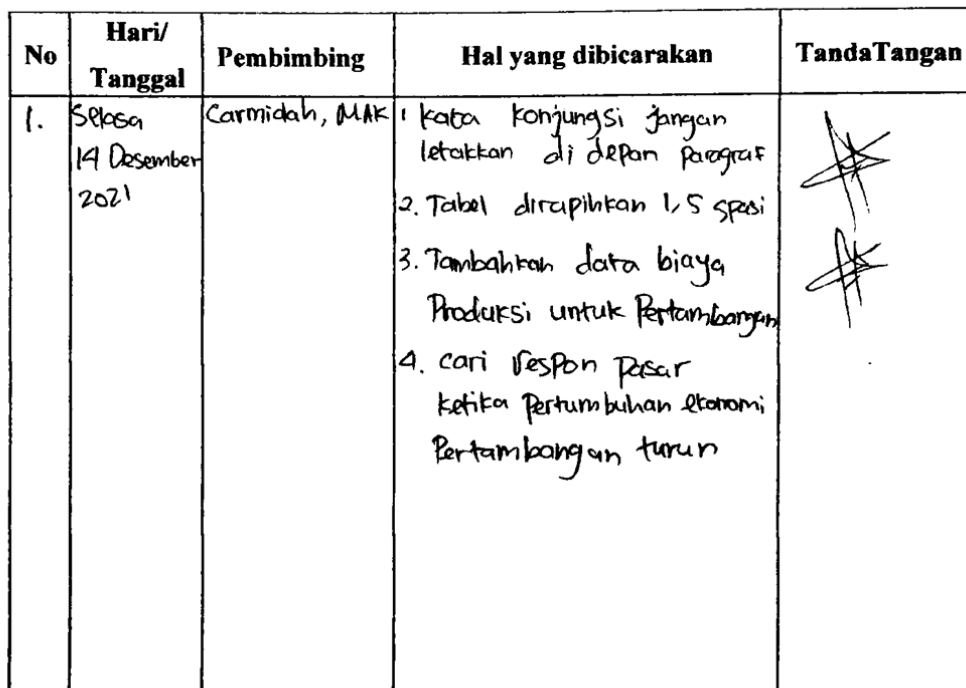 No Hari/ Tanggal Pembimbing Hal yang dibicarakan TandaTangan
1. Selasa Carmidah, MAK 1 kata konjungsi jangan
14 Desember letakkan di depan paragraf
2021 2. Tabel dirapihkan 1,5 spasi
3. Tambahkan data biaya
Produksi untuk Pertambangan
4. cari respon pasar
ketika pertumbuhan ekonomi
Pertambangan turun